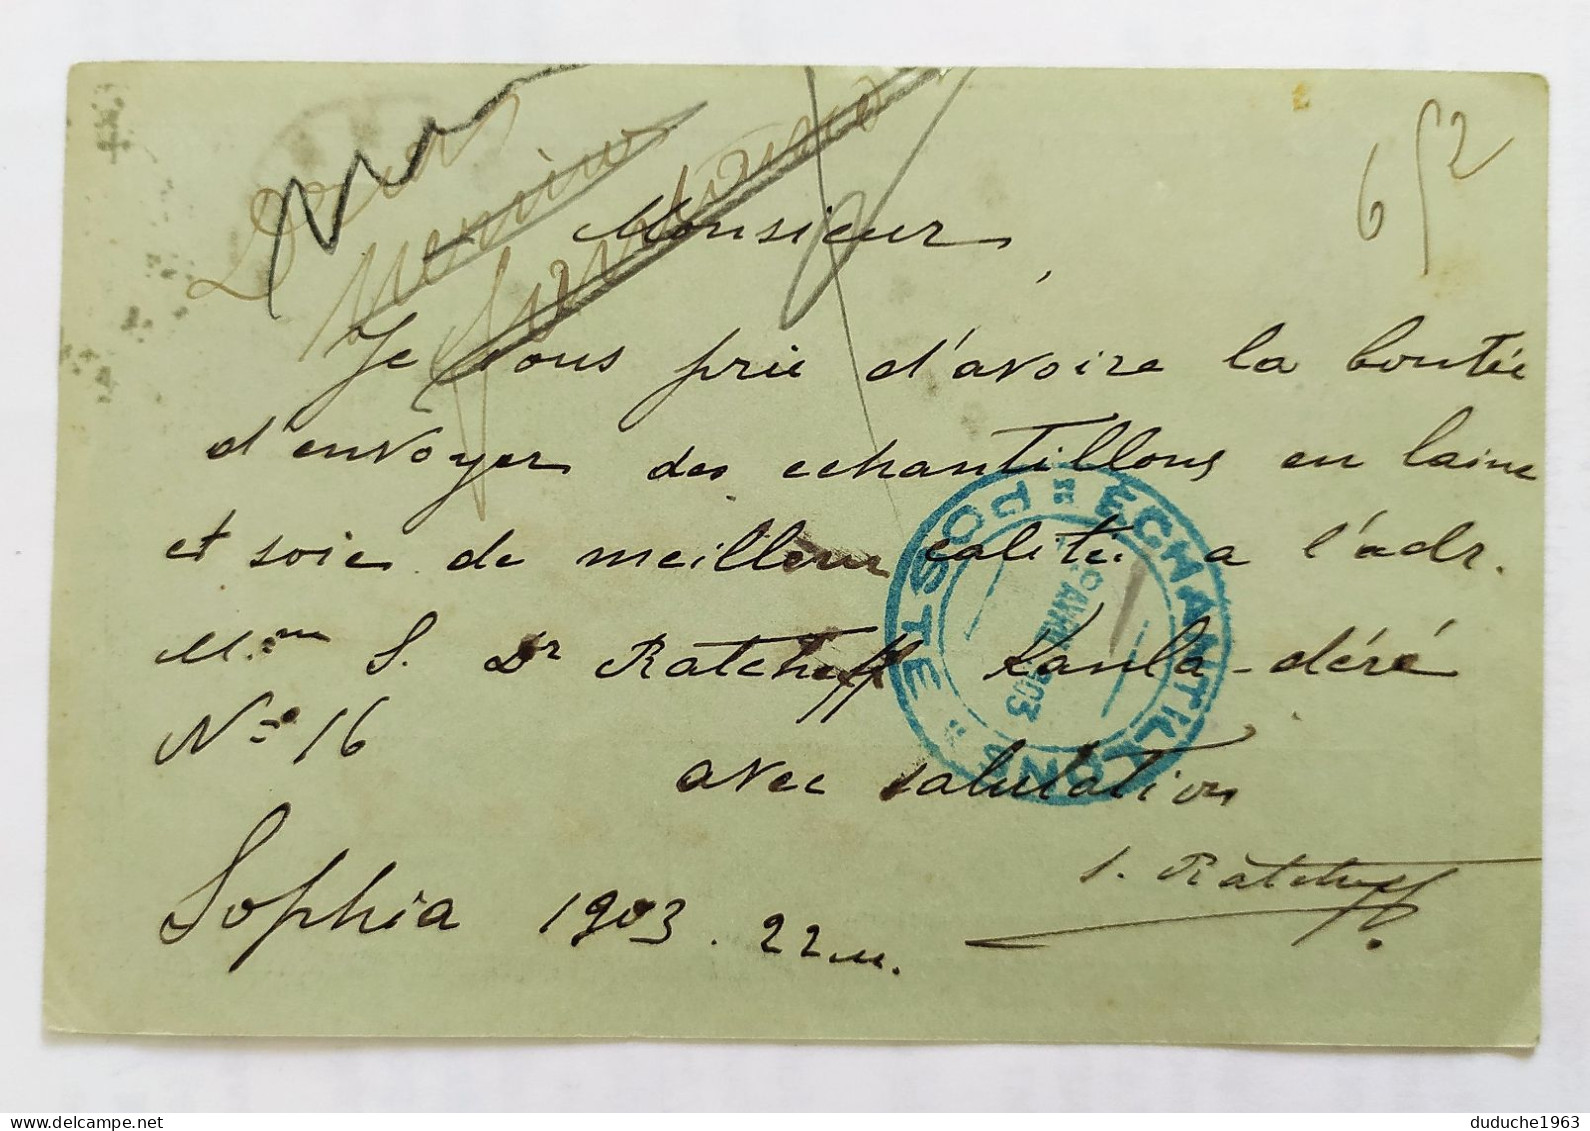 652
Monsieur,
Je vous prie d'avoire la boutée
d'envoyer des echantillons en laine
et soie de meilleur calitée a l'adr.
M.me S. Dr Ratcheff Kanla-déré
No 16
avec salutation
S. Ratcheff
Sophia 1903. 22 m.
POSTE ECHANTILLONS
AVRIL 1903
duduche1963